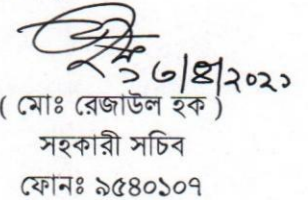 ১৩/৪/২০২১
( মোঃ রেজাউল হক )
সহকারী সচিব
ফোনঃ ৯৫৪০১০৭